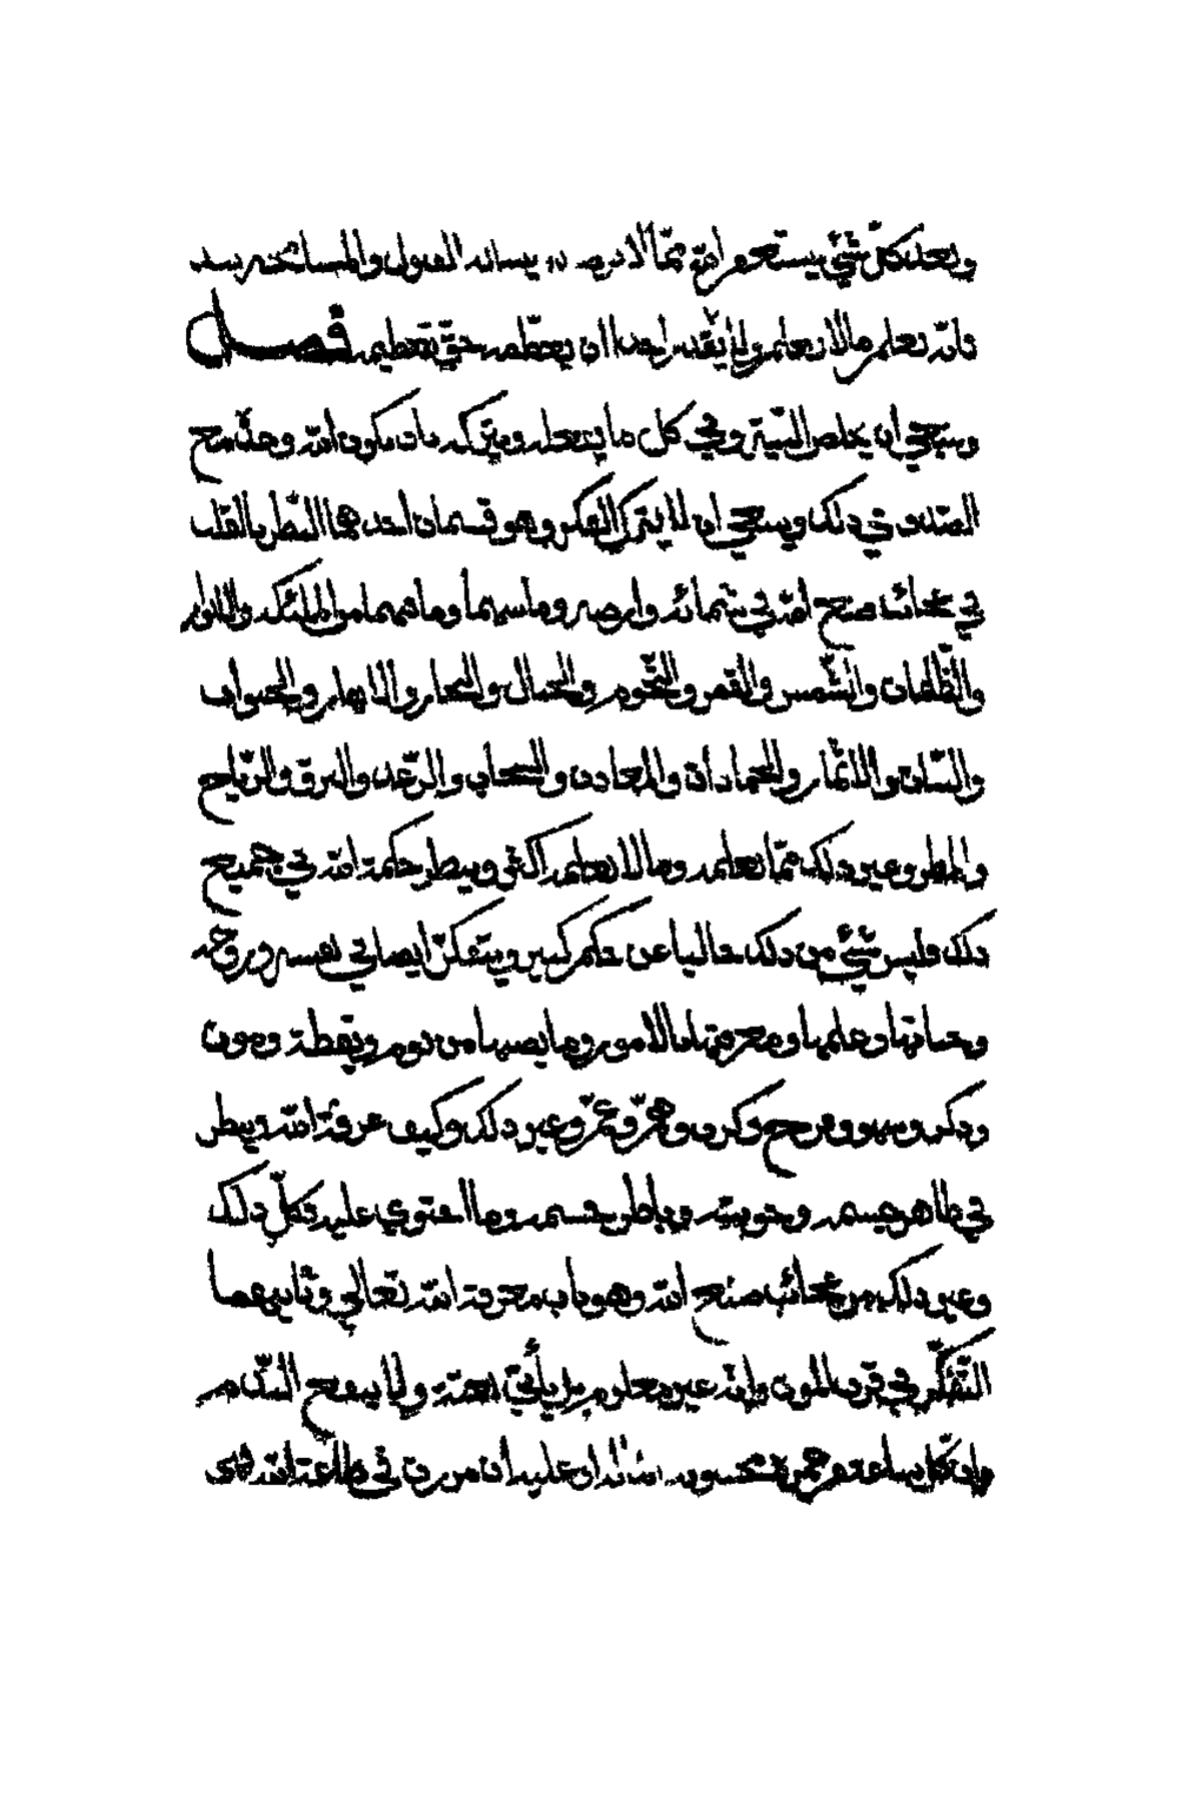 وبعد كل شيء يستغفر الله مما لا يرضى به يساله القبول والمسامحة
فانه يعلم ما لا يعلم ولا يقدر احد ان يعظمه حق تعظيمه فصل
وينبغي ان يخلص النية في كل ما يفعله ويتركه بان يكون لله وحده مع
الصدق في ذلك وينبغي ان لا يترك الفكر وهو قسمان احدهما النظر بالقلب
في عجائب صنع الله في سمائه وارضه وما بينهما وما فيهما من الملئكة والانوار
والظلمات والشمس والقمر والنجوم والجبال والبحار والانهار والحيوان
والنبات والاثمار والجمادات والمعادن والسحاب والرعد والبرق والرياح
والمطر وغير ذلك مما نعلمه وما لا نعلمه اكثر وينظر حكمة الله في جميع
ذلك فليس شيء من ذلك خاليا عن حكم كبير ويتفكر ايضا في نفسه وروحه
وحياتها وعلمها ومعرفتها بالامور وما يصيبها من نوم ويقظة وموت
وذكر وسهو وفرح وكرب وهم وغم وغير ذلك وكيف عرفت الله وينظر
في ظاهر جسمه وباطن جسمه وما احتوي عليه فكل ذلك
وغير ذلك من عجائب صنع الله وهو باب معرفة الله تعالي وثانيهما
التفكر في قرب الموت وانه غير معلوم بل يأتي بغتة ولا ينفع الندم
وان كل ساعة من عمره محسوبة عليه ان مرت في طاعة الله